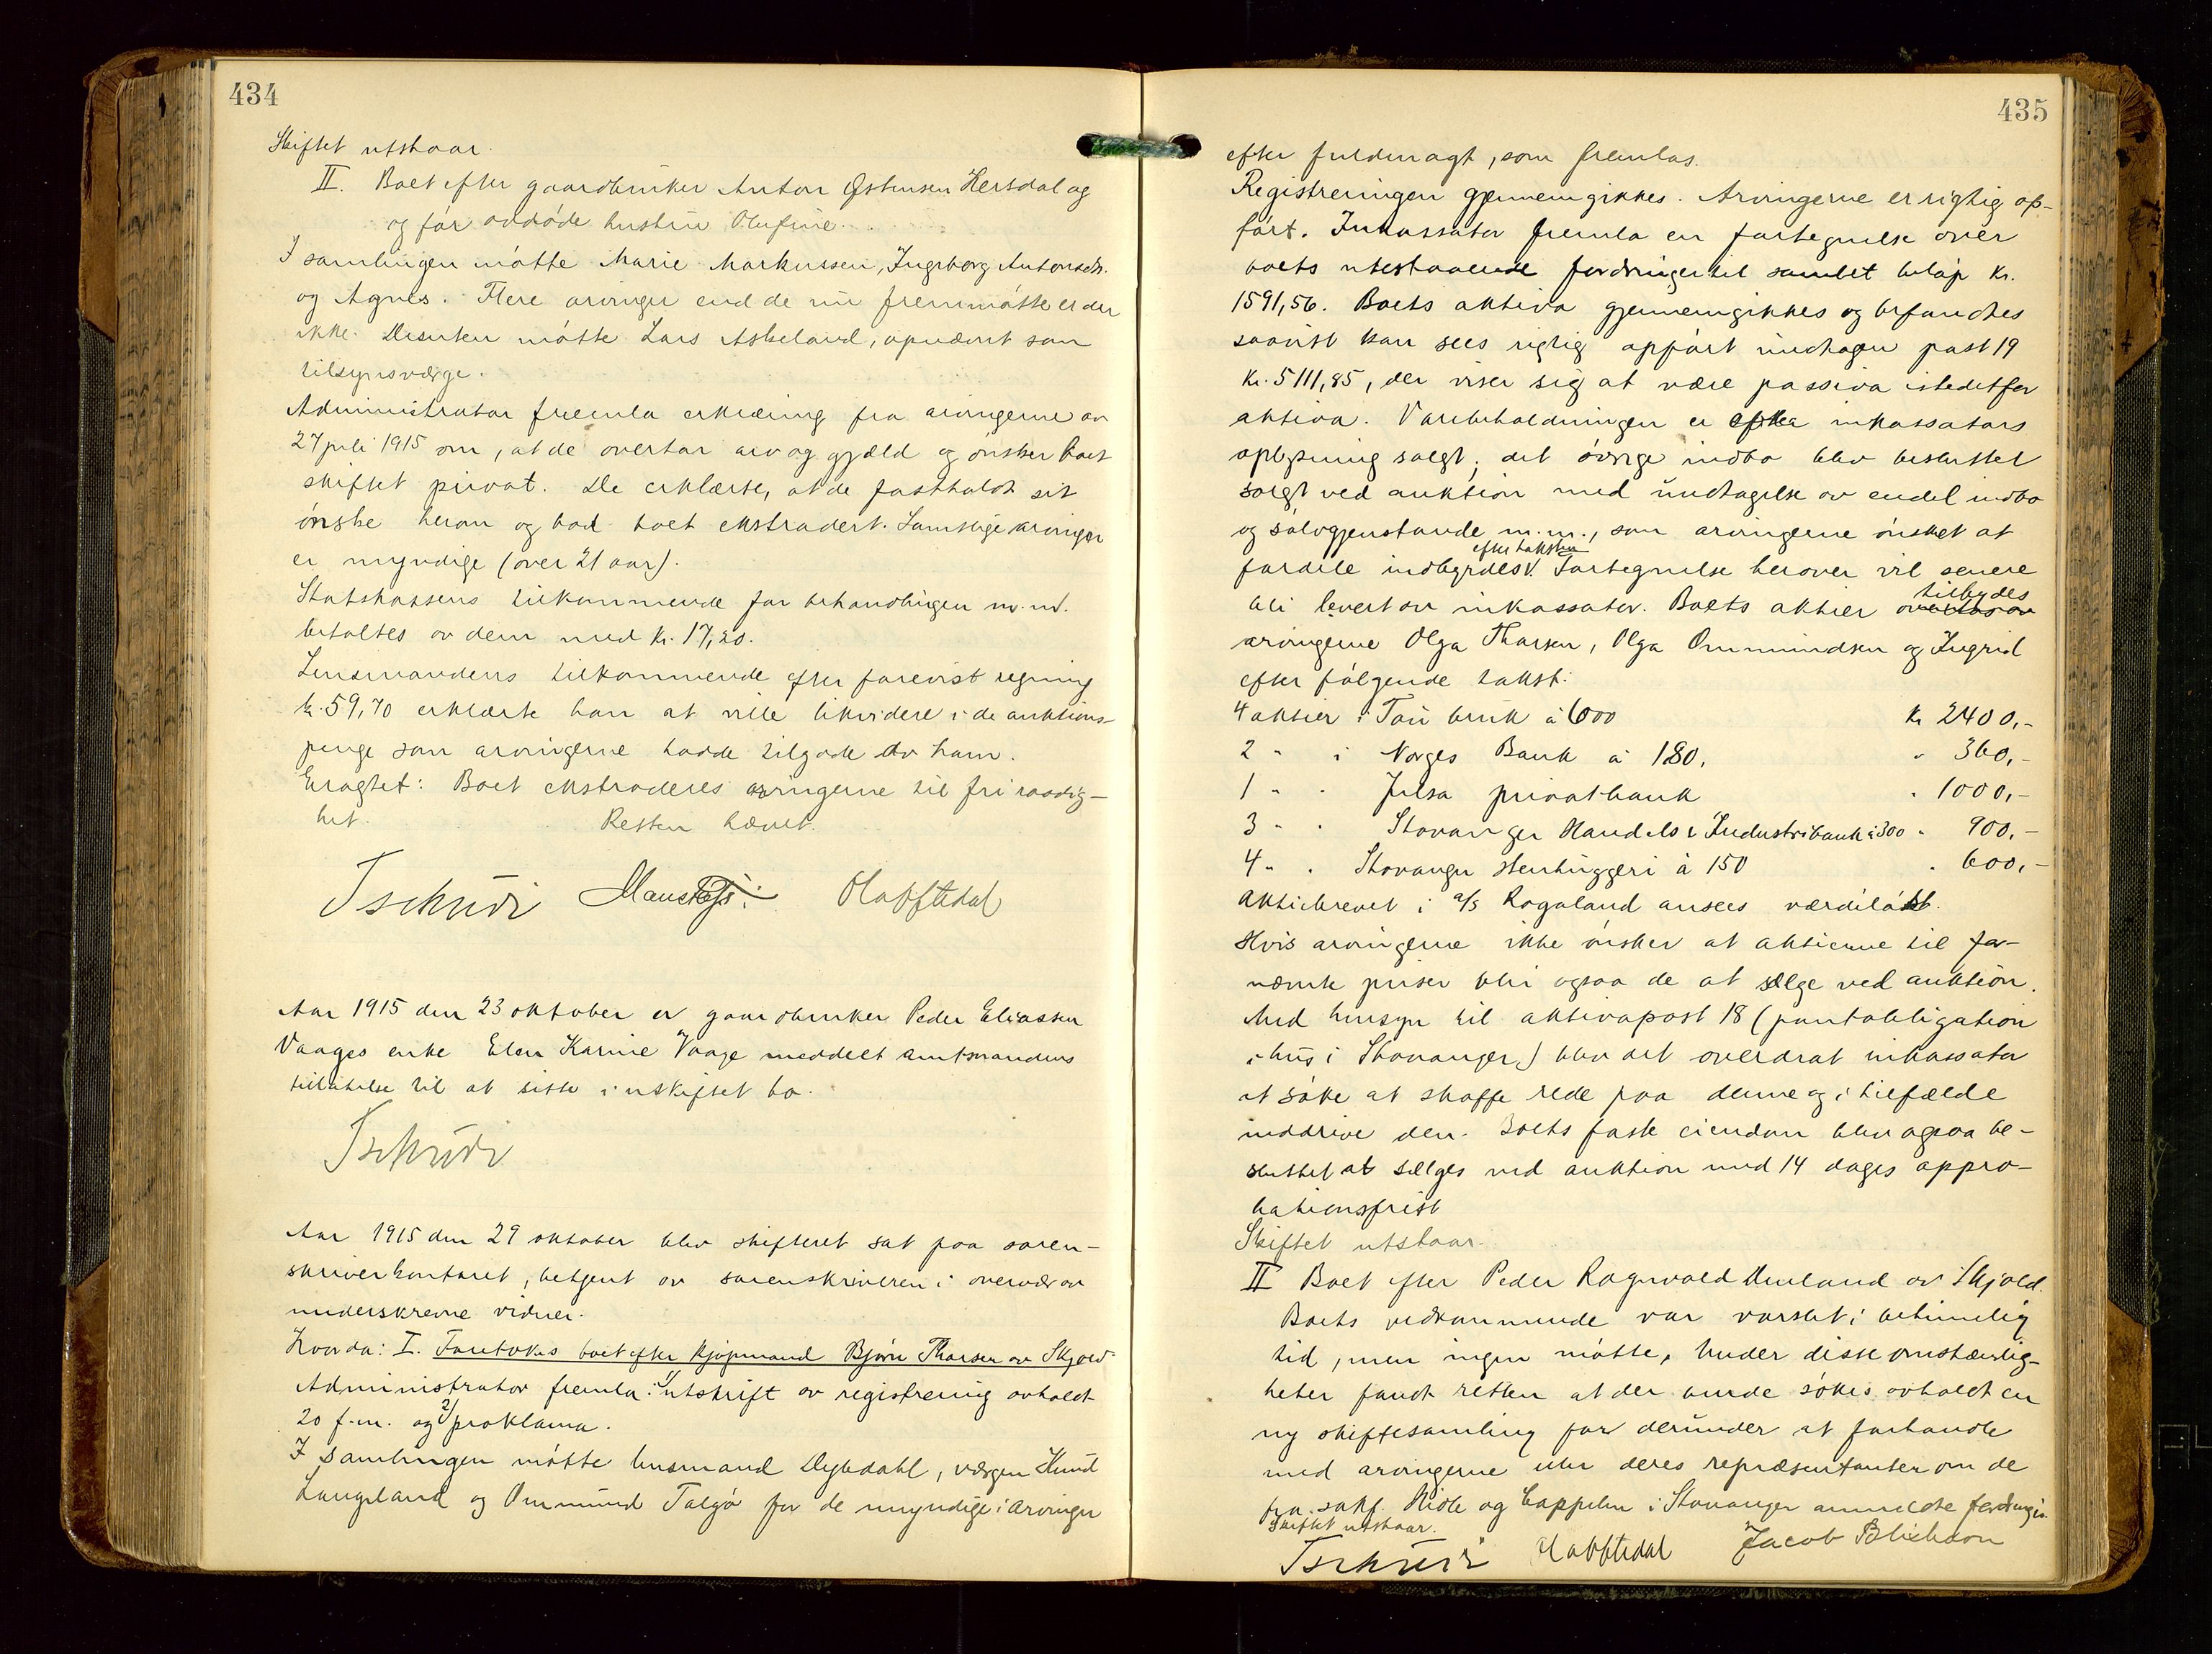 434
Skiftet utstaar.
II. Boet efter gaardbruker Anton Østensen Hersdal og
og før avdøde hustru Olufine.
I samlingen møtte Marie Markussen, Ingeborg Antonsdtr.
og Agnes. Flere arvinger end de nu fremmøtte er der
ikke. Desuten møtte Lars Askeland, opnævnt som
tilsynsværge.
Administrator fremla erklæring fra arvingerne av
27 juli 1915 om, at de overtar arv og gjæld og ønsker boet
skiftet privat. De erklærte, at de fastholdt sit
ønske herom og bad boet ekstradert. Samtlige arvinger
er myndige (over 21 aar).
Statskassens tilkommende for behandlingen m.m.
betaltes av dem med kr. 17,20.
Lensmandens tilkommende efter forevist regning
kr. 59,70 erklærte han at ville likvidere i de auktions-
penge som arvingerne hadde tilgode av ham.
Eragtet: Boet ekstraderes arvingerne til fri raadig-
het. Retten hævet.
Tschudi Olav Ftedal
Aar 1915 den 23 oktober er gaardbruker Peder Eliassen
Vaages enke Elen Karine Vaage meddelt amtmandens
tillatelse til at sitte i uskiftet bo.
Tschudi
Aar 1915 den 29 oktober blev skifteret sat paa soren-
skriverkontoret, betjent av sorenskriveren i overvær av
underskrevne vidner.
Hvorda: I. Foretokes boet efter kjøpmand Bjørn Thorsen av Skjold
Administrator fremla: 1) utskrift av registrering avholdt
20 f.m. og 2) proklama.
I samlingen møtte lensmand Dybdahl, værgen Knud
Langeland og Ommund Talgø for de umyndige arvinger
435
efter fuldmagt, som fremlas.
Registreringen gjennemgikkes. Arvingerne er rigtig op-
ført. Inkassator fremla en fortegnelse over
boets utestaaende fordringer til samlet beløp kr.
1591,56. Boets aktiva gjennemgikkes og befandtes
saavidt kan sees rigtig opført undtagen post 19
kr. 5111,85, der viser sig at være passiva istedetfor
aktiva. Varebeholdningen er efter inkassators
oplysning solgt; det øvrige indbo blev besluttet
solgt ved auktion med undtagelse av endel indbo
og sølvgjenstande m.m., som arvingerne ønsket at
efter taksten
fordele indbyrdes V. Fortegnelse herover vil senere
tilbydes
bli levert av inkassator. Boets aktier overtas av
arvingerne Olga Thorsen, Olga Ommundsen og Ingrid
efter følgende takst:
4 aktier i Tau bruk á 600 kr 2400,-
2 " i Norges Bank á 180, " 360,-
1 " " Jelsa privatbank " 1000,-
3 " " Stavanger Handels & Industribank á 300 " 900,-
4 " " Stavanger Stenhuggeri á 150 " 600,-
Aktiebrevet i a/s Rogaland ansees værdiløst.
Hvis arvingerne ikke ønsker at aktierne til for-
nævnte priser blir ogsaa de at sælge ved auktion.
Med hensyn til aktivapost 18 (pantobligation
i hus i Stavanger) blev det overdrat inkassator
at søke at skaffe rede paa denne og i tilfælde
inddrive den. Boets faste eiendom blev ogsaa be-
sluttet at sælges ved auktion med 14 dages appro-
bationsfrist
Skiftet utstaar.
II Boet efter Peder Ragnvald av Skjold.
Boets vedkommende var varslet i betimelig
tid, men ingen møtte. Under disse omstændig-
heter fandt retten at der burde søkes avholdt en
ny skiftesamling for derunder at forhandle
med arvingerne eller deres repræsentanter om de
fra sakf. og Cappelen i Stavanger anmeldte fordringer.
Skiftet utstaar.
Tschudi Olav Ftedal Jacob Blichson